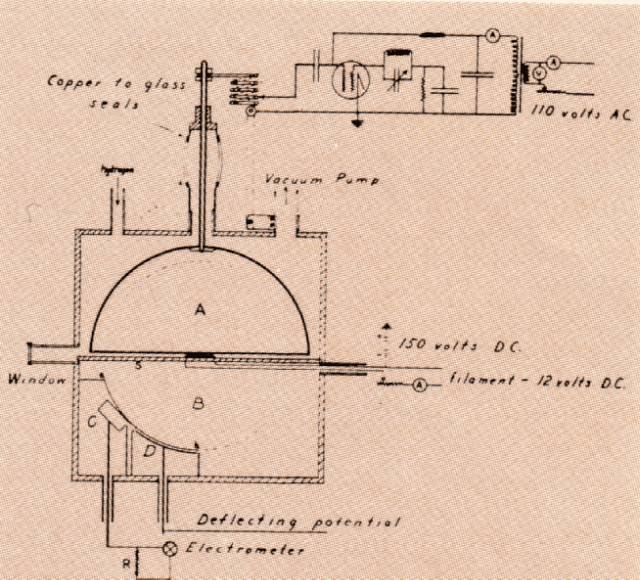 Copper to glass
seals
A
A
V
110 volts AC.
hydrogen
Vacuum Pump
A
150 volts D.C.
S
filament - 12 volts D.C.
A
Window
B
C
D
Deflecting potential
Electrometer
R